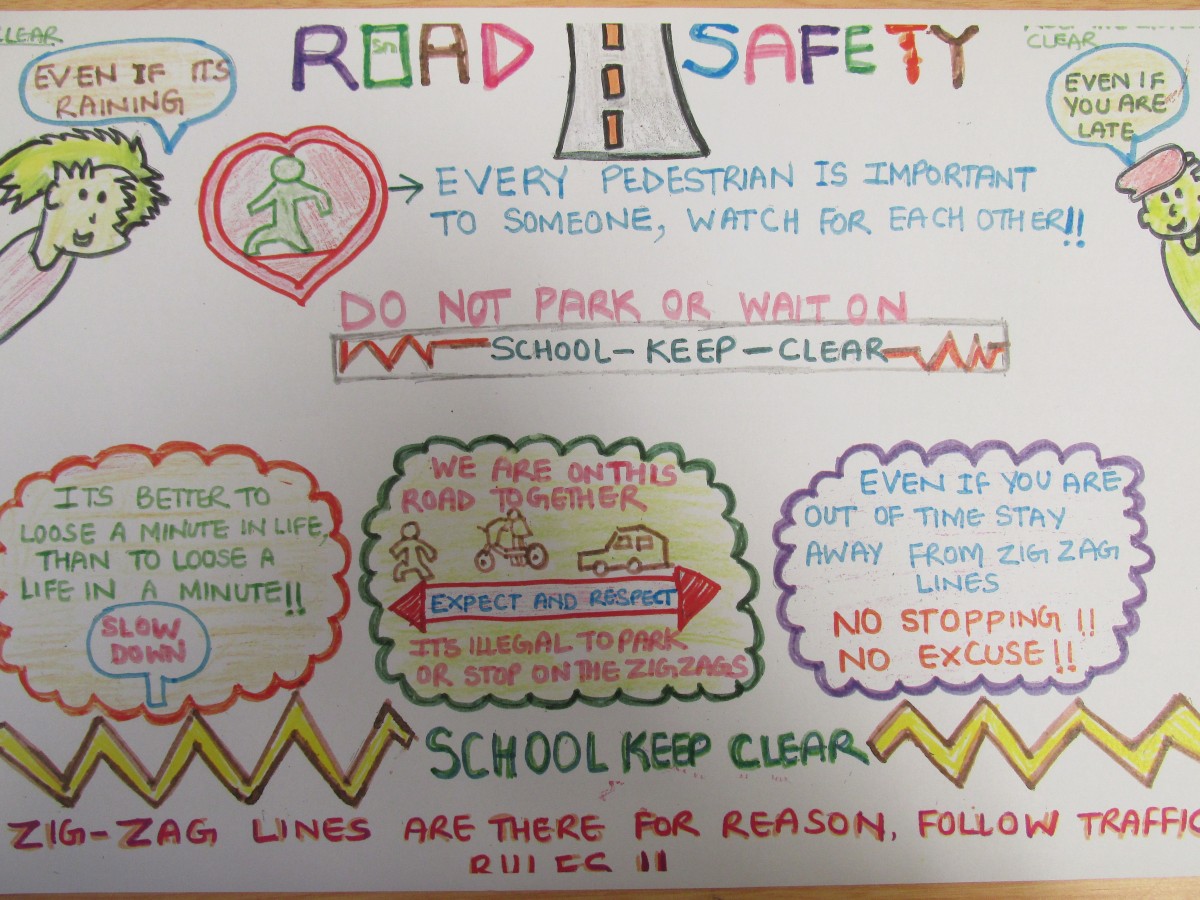 CLEAR
EVEN IF ITS
RAINING
ROAD SAFETY
CLEAR
EVEN IF
YOU ARE
LATE
EVERY PEDESTRIAN IS IMPORTANT
TO SOMEONE, WATCH FOR EACH OTHER!!
DO NOT PARK OR WAIT ON
SCHOOL-KEEP-CLEAR
ITS BETTER TO
LOOSE A MINUTE IN LIFE,
THAN TO LOOSE A
LIFE IN A MINUTE!!
SLOW
DOWN
WE ARE ON THIS
ROAD TOGETHER
EXPECT AND RESPECT
IT'S ILLEGAL TO PARK
OR STOP ON THE ZIGZAGS
EVEN IF YOU ARE
OUT OF TIME STAY
AWAY FROM ZIG ZAG
LINES
NO STOPPING !!
NO EXCUSE!!
SCHOOL KEEP CLEAR
ZIG-ZAG LINES ARE THERE FOR REASON, FOLLOW TRAFFIC
RULES !!